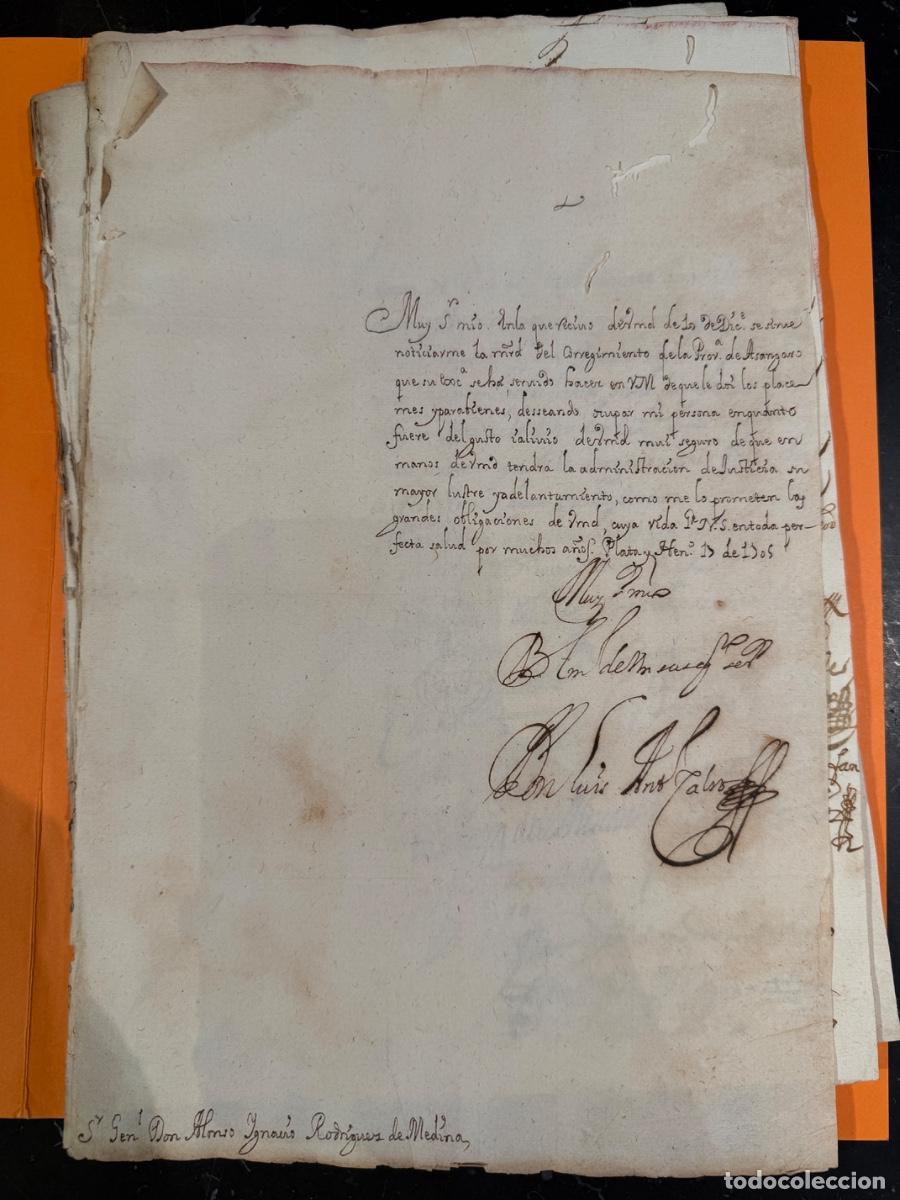 Muy Sr mio. En la que recivo de Vmd de 19 de Dice se sirve
noticiarme la mrd del Corregimiento de la Prova de Asangaro
que su Exca se há servido hacer en VM de que le doi los place-
mes y parabienes, desseando ocupar mi persona en quanto
fuere del gusto i alivio de Vmd mui seguro de que en
manos de Vmd tendra la administracion de Justicia su
mayor lustre y adelantamiento, como me lo prometen las
grandes obligaciones de Vmd, cuya vida Ge N. S. en toda per-
fecta salud por muchos años. Plata y Heno de
Muy Sr mio
B l m de Vm su ser
Don Luis Anto Calvo
Sr Genl Don Alonso Ygnacio Rodriguez de Medina
todocoleccion